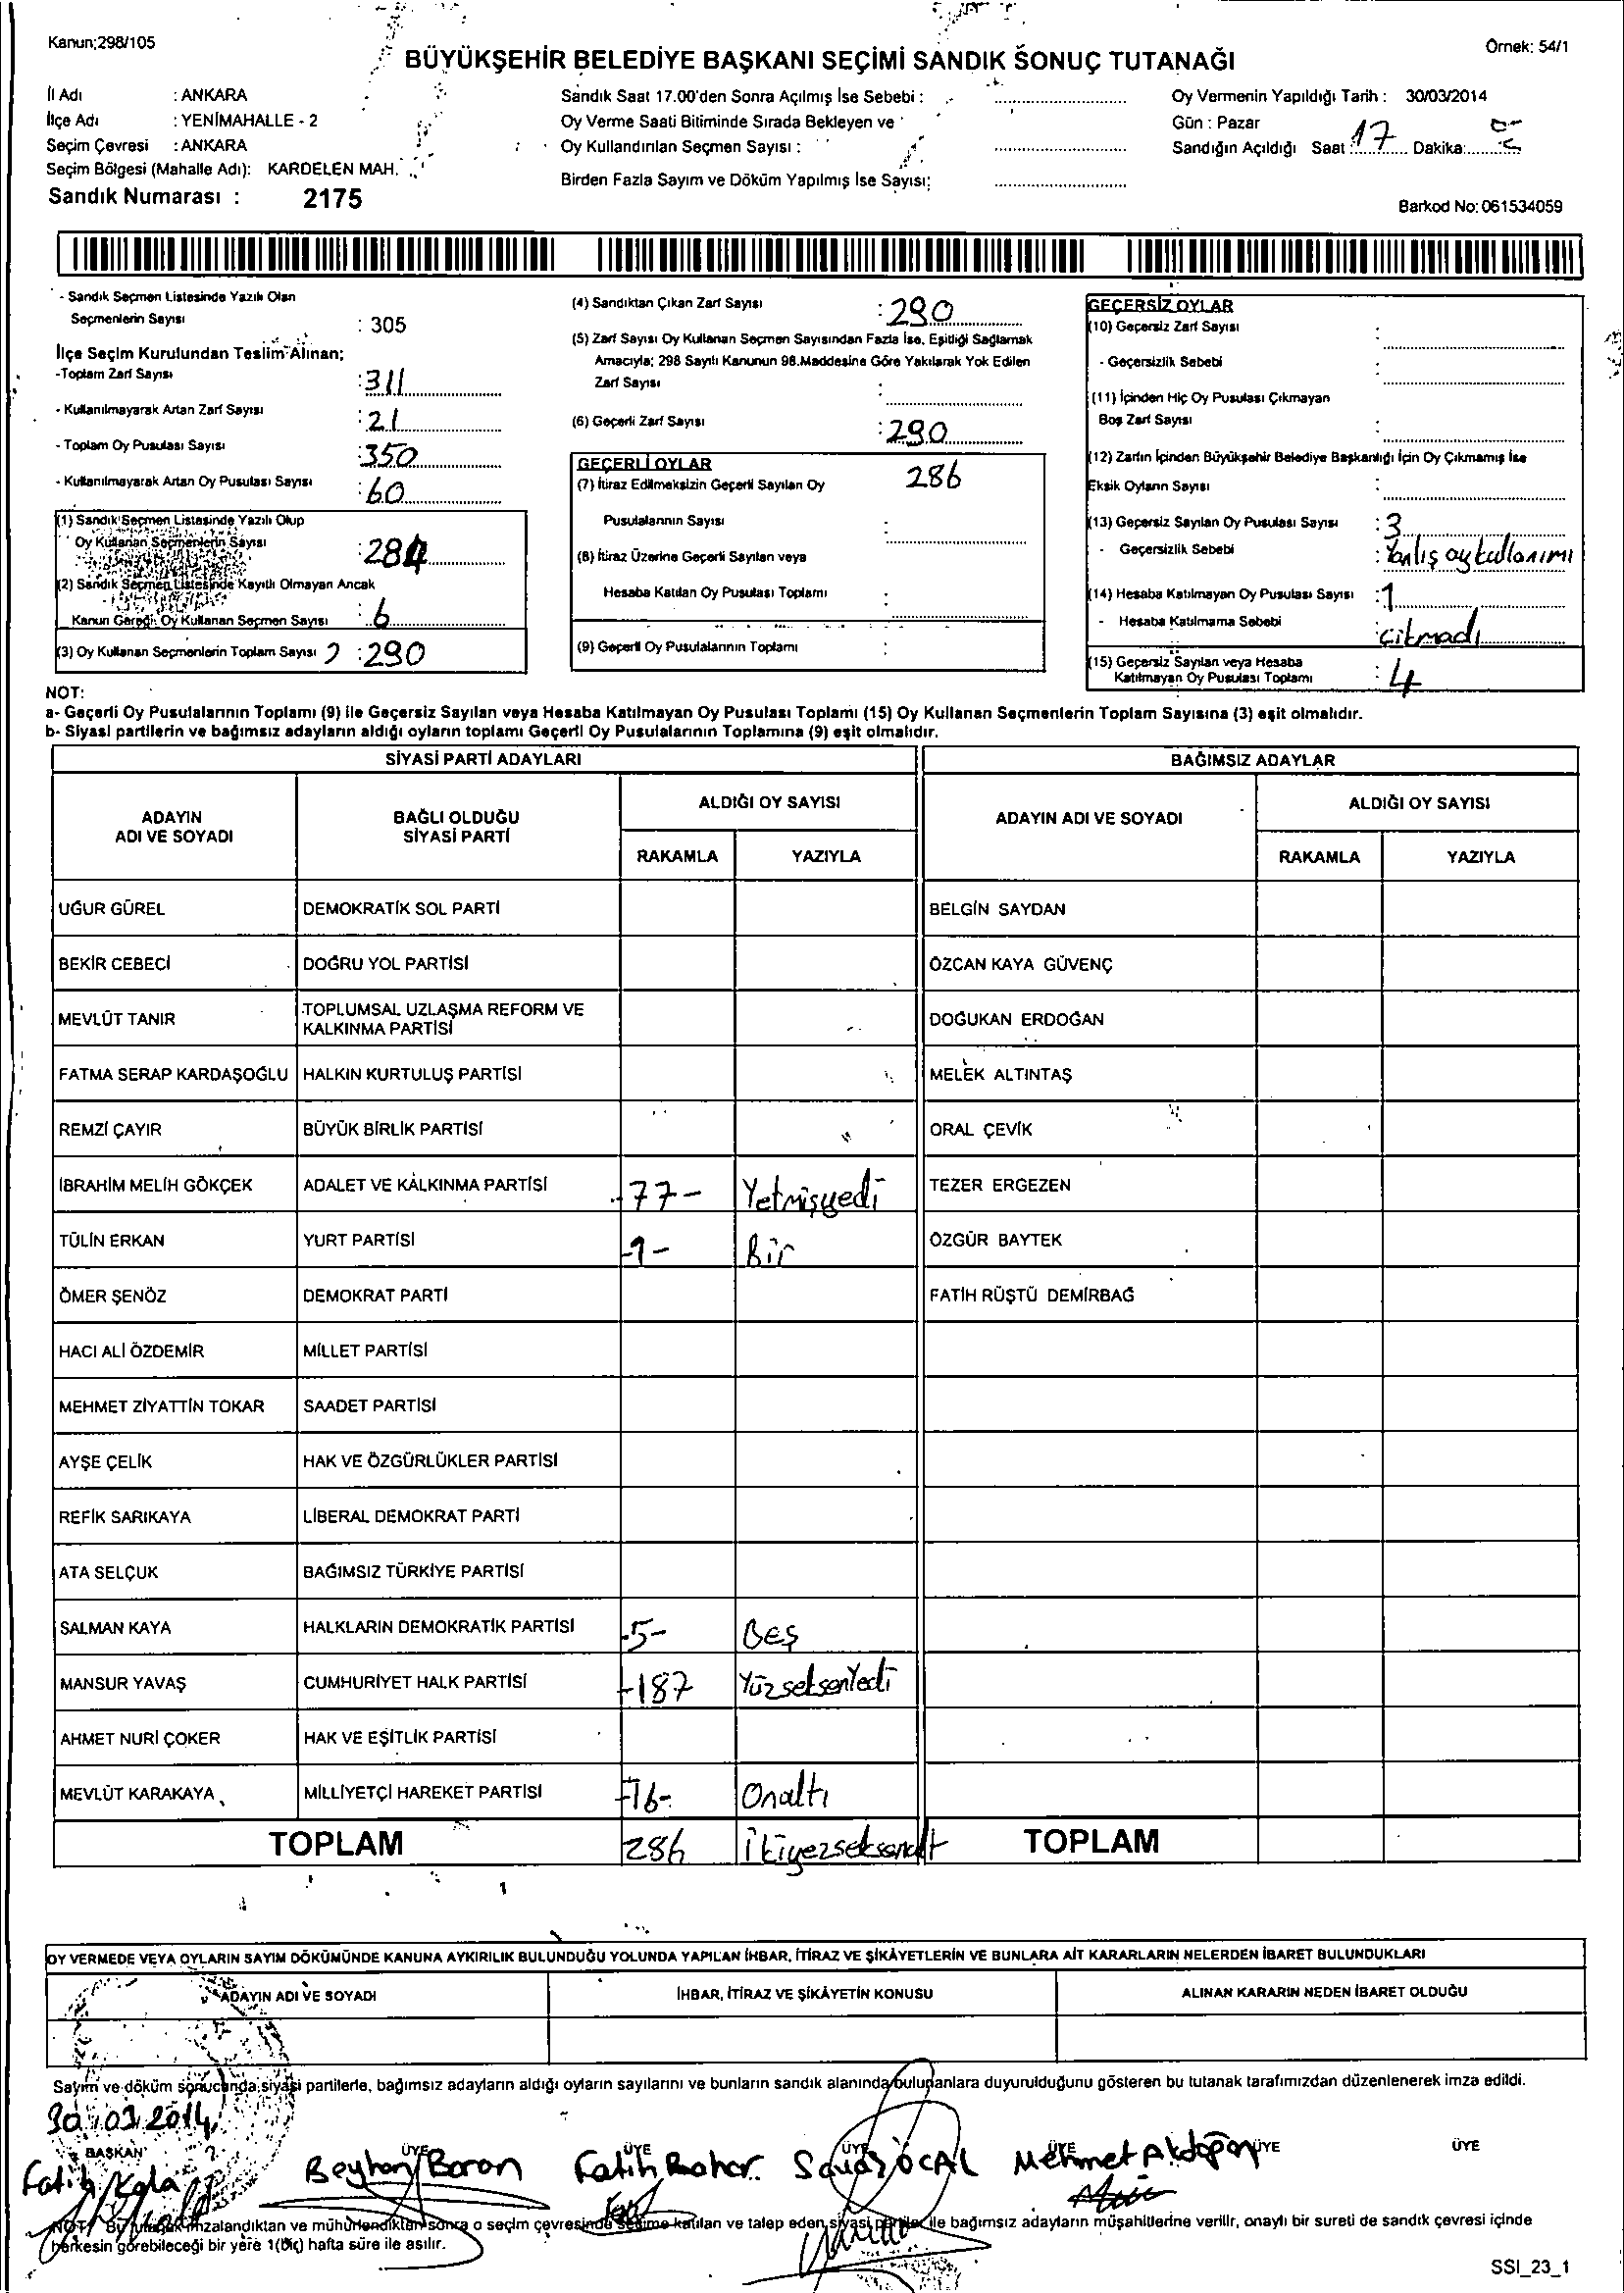 Kanun;298/105
Örnek: 54/1
BÜYÜKŞEHİR BELEDİYE BAŞKANI SEÇİMİ SANDIK SONUÇ TUTANAĞI
İl Adı : ANKARA
İlçe Adı : YENİMAHALLE - 2
Seçim Çevresi : ANKARA
Seçim Bölgesi (Mahalle Adı): KARDELEN MAH.
Sandık Numarası : 2175
Sandık Saat 17.00'den Sonra Açılmış İse Sebebi :
Oy Verme Saati Bitiminde Sırada Bekleyen ve
Oy Kullandırılan Seçmen Sayısı :
Birden Fazla Sayım ve Döküm Yapılmış İse Sayısı:
Oy Vermenin Yapıldığı Tarih : 30/03/2014
Gün : Pazar
Sandığın Açıldığı Saat : 17 Dakika:
Barkod No: 061534059
- Sandık Seçmen Listesinde Yazılı Olan
Seçmenlerin Sayısı : 305
İlçe Seçim Kurulundan Teslim Alınan;
-Toplam Zarf Sayısı : 311
- Kullanılmayarak Artan Zarf Sayısı : 21
- Toplam Oy Pusulası Sayısı : 350
- Kullanılmayarak Artan Oy Pusulası Sayısı : 60
(1) Sandık Seçmen Listesinde Yazılı Olup
Oy Kullanan Seçmenlerin Sayısı : 284
(2) Sandık Seçmen Listesinde Kayıtlı Olmayan Ancak
Kanun Gereği Oy Kullanan Seçmen Sayısı : 6
(3) Oy Kullanan Seçmenlerin Toplam Sayısı : 290
(4) Sandıktan Çıkan Zarf Sayısı : 290
(5) Zarf Sayısı Oy Kullanan Seçmen Sayısından Fazla İse, Eşitliği Sağlamak
Amacıyla; 298 Sayılı Kanunun 98.Maddesine Göre Yakılarak Yok Edilen
Zarf Sayısı :
(6) Geçerli Zarf Sayısı : 290
GEÇERLİ OYLAR
(7) İtiraz Edilmeksizin Geçerli Sayılan Oy 286
Pusulalarının Sayısı :
(8) İtiraz Üzerine Geçerli Sayılan veya
Hesaba Katılan Oy Pusulası Toplamı :
(9) Geçerli Oy Pusulalarının Toplamı :
GEÇERSİZ OYLAR
(10) Geçersiz Zarf Sayısı :
- Geçersizlik Sebebi :
(11) İçinden Hiç Oy Pusulası Çıkmayan
Boş Zarf Sayısı :
(12) Zarfın İçinden Büyükşehir Belediye Başkanlığı İçin Oy Çıkmamış İse
Eksik Oyların Sayısı :
(13) Geçersiz Sayılan Oy Pusulası Sayısı : 3
- Geçersizlik Sebebi : Yanlış oy kullanımı
(14) Hesaba Katılmayan Oy Pusulası Sayısı : 1
- Hesaba Katılmama Sebebi : çıkmadı
(15) Geçersiz Sayılan veya Hesaba
Katılmayan Oy Pusulası Toplamı : 4
NOT:
a- Geçerli Oy Pusulalarının Toplamı (9) ile Geçersiz Sayılan veya Hesaba Katılmayan Oy Pusulası Toplamı (15) Oy Kullanan Seçmenlerin Toplam Sayısına (3) eşit olmalıdır.
b- Siyasi partilerin ve bağımsız adayların aldığı oyların toplamı Geçerli Oy Pusulalarının Toplamına (9) eşit olmalıdır.
SİYASİ PARTİ ADAYLARI BAĞIMSIZ ADAYLAR
ADAYIN ADI VE SOYADI BAĞLI OLDUĞU SİYASİ PARTİ ALDIĞI OY SAYISI ADAYIN ADI VE SOYADI ALDIĞI OY SAYISI
RAKAMLA YAZIYLA RAKAMLA YAZIYLA
UĞUR GÜREL DEMOKRATİK SOL PARTİ BELGİN SAYDAN
BEKİR CEBECİ DOĞRU YOL PARTİSİ ÖZCAN KAYA GÜVENÇ
MEVLÜT TANIR TOPLUMSAL UZLAŞMA REFORM VE KALKINMA PARTİSİ DOĞUKAN ERDOĞAN
FATMA SERAP KARDAŞOĞLU HALKIN KURTULUŞ PARTİSİ MELEK ALTINTAŞ
REMZİ ÇAYIR BÜYÜK BİRLİK PARTİSİ ORAL ÇEVİK
İBRAHİM MELİH GÖKÇEK ADALET VE KALKINMA PARTİSİ -77- Yetmişyedi TEZER ERGEZEN
TÜLİN ERKAN YURT PARTİSİ -1- Bir ÖZGÜR BAYTEK
ÖMER ŞENÖZ DEMOKRAT PARTİ FATİH RÜŞTÜ DEMİRBAĞ
HACI ALİ ÖZDEMİR MİLLET PARTİSİ
MEHMET ZİYATTİN TOKAR SAADET PARTİSİ
AYŞE ÇELİK HAK VE ÖZGÜRLÜKLER PARTİSİ
REFİK SARIKAYA LİBERAL DEMOKRAT PARTİ
ATA SELÇUK BAĞIMSIZ TÜRKİYE PARTİSİ
SALMAN KAYA HALKLARIN DEMOKRATİK PARTİSİ -5- Beş
MANSUR YAVAŞ CUMHURİYET HALK PARTİSİ -187 YüzseksenYedi
AHMET NURİ ÇOKER HAK VE EŞİTLİK PARTİSİ
MEVLÜT KARAKAYA MİLLİYETÇİ HAREKET PARTİSİ -16- Onaltı
TOPLAM 286 İkiyezseksenalt TOPLAM
OY VERMEDE VEYA OYLARIN SAYIM DÖKÜMÜNDE KANUNA AYKIRILIK BULUNDUĞU YOLUNDA YAPILAN İHBAR, İTİRAZ VE ŞİKÂYETLERİN VE BUNLARA AİT KARARLARIN NELERDEN İBARET BULUNDUKLARI
ADAYIN ADI VE SOYADI İHBAR, İTİRAZ VE ŞİKÂYETİN KONUSU ALINAN KARARIN NEDEN İBARET OLDUĞU
Sayım ve döküm sonucunda siyasi partilerle, bağımsız adayların aldığı oyların sayılarını ve bunların sandık alanında bulunanlara duyurulduğunu gösteren bu tutanak tarafımızdan düzenlenerek imza edildi.
30.03.2014
BAŞKAN ÜYE ÜYE ÜYE ÜYE ÜYE ÜYE
Fatih Kala Beyhan Baran Fatih Bahar Savaş ÖCAL Mehmet Akdoğan
NOT: Bu tutanak imzalandıktan ve mühürlendikten sonra o seçim çevresinde seçime katılan ve talep eden siyasi partiler ile bağımsız adayların müşahitlerine verilir, onaylı bir sureti de sandık çevresi içinde
herkesin görebileceği bir yere 1(bir) hafta süre ile asılır.
SSI_23_1